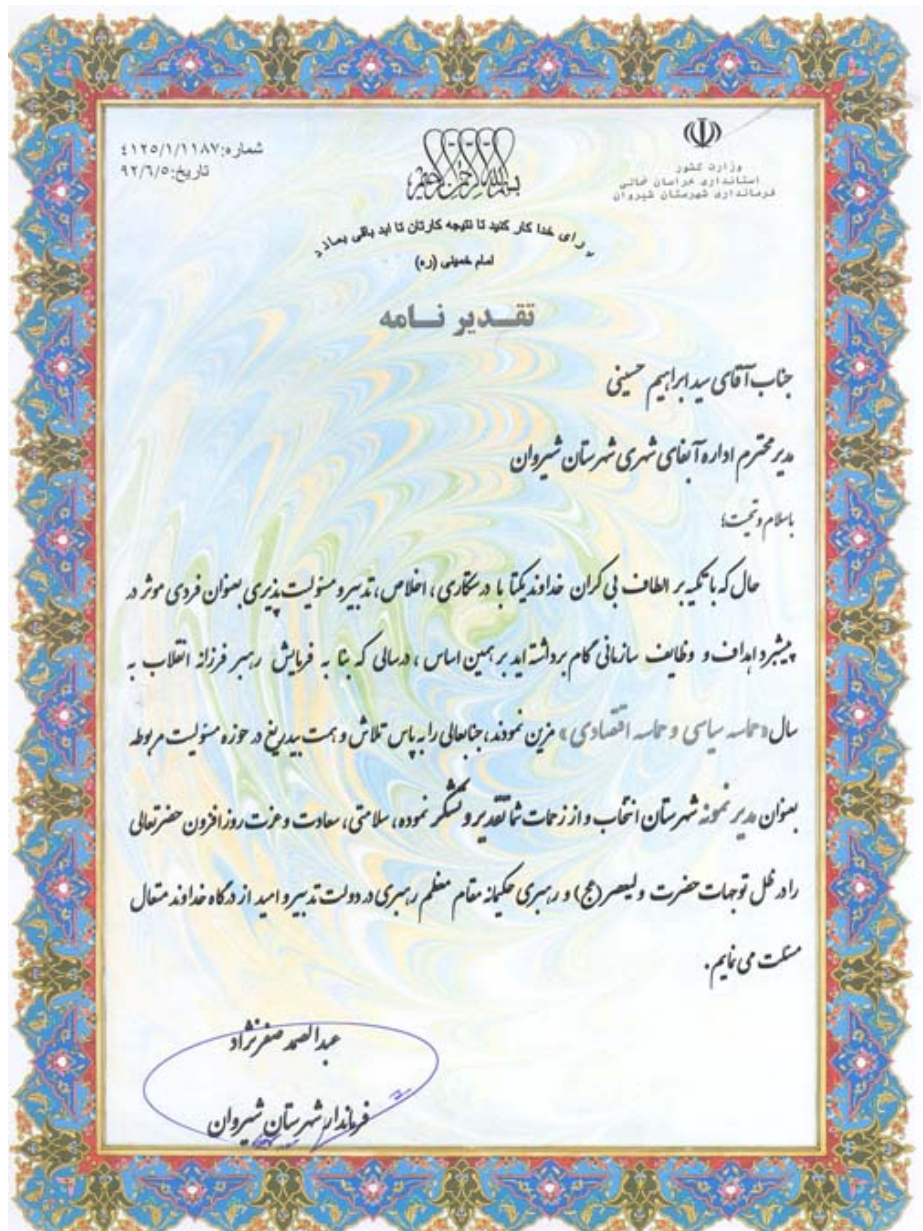 وزارت کشور
استانداری خراسان شمالی
فرمانداری شهرستان شیروان
بسم الله الرحمن الرحیم
شماره:٤١٢٥/١/١١٨٧
تاریخ:٩٢/٦/٥
برای خدا کار کنید تا نتیجه کارتان تا ابد باقی بماند
امام خمینی (ره)
تقـــدیر نـــامه
جناب آقای سید ابراهیم حسینی
مدیر محترم اداره آبفای شهری شهرستان شیروان
باسلام و تحیت؛
حال که با تکیه بر الطاف بی کران خداوند یکتا با درستکاری ، اخلاص، تدبیر و مسئولیت پذیری بعنوان فردی موثر در
پیشبرد اهداف و وظایف سازمانی گام برداشته اید بر همین اساس ، درسالی که بنا به فرمایش رهبر فرزانه انقلاب به
سال «حماسه سیاسی و حماسه اقتصادی» مزین نمودند، جنابعالی را به پاس تلاش و همت بیدریغ در حوزه مسئولیت مربوطه
بعنوان مدیر نمونه شهرستان انتخاب و از زحمات شما تقدیر و تشکر نموده، سلامتی، سعادت و عزت روز افزون حضرتعالی
را در ظل توجهات حضرت ولیعصر (عج) و رهبری حکیمانه مقام معظم رهبری در دولت تدبیر و امید از درگاه خداوند متعال
مسئلت می نمایم .
عبدالصمد صفرنژاد
فرماندار شهرستان شیروان